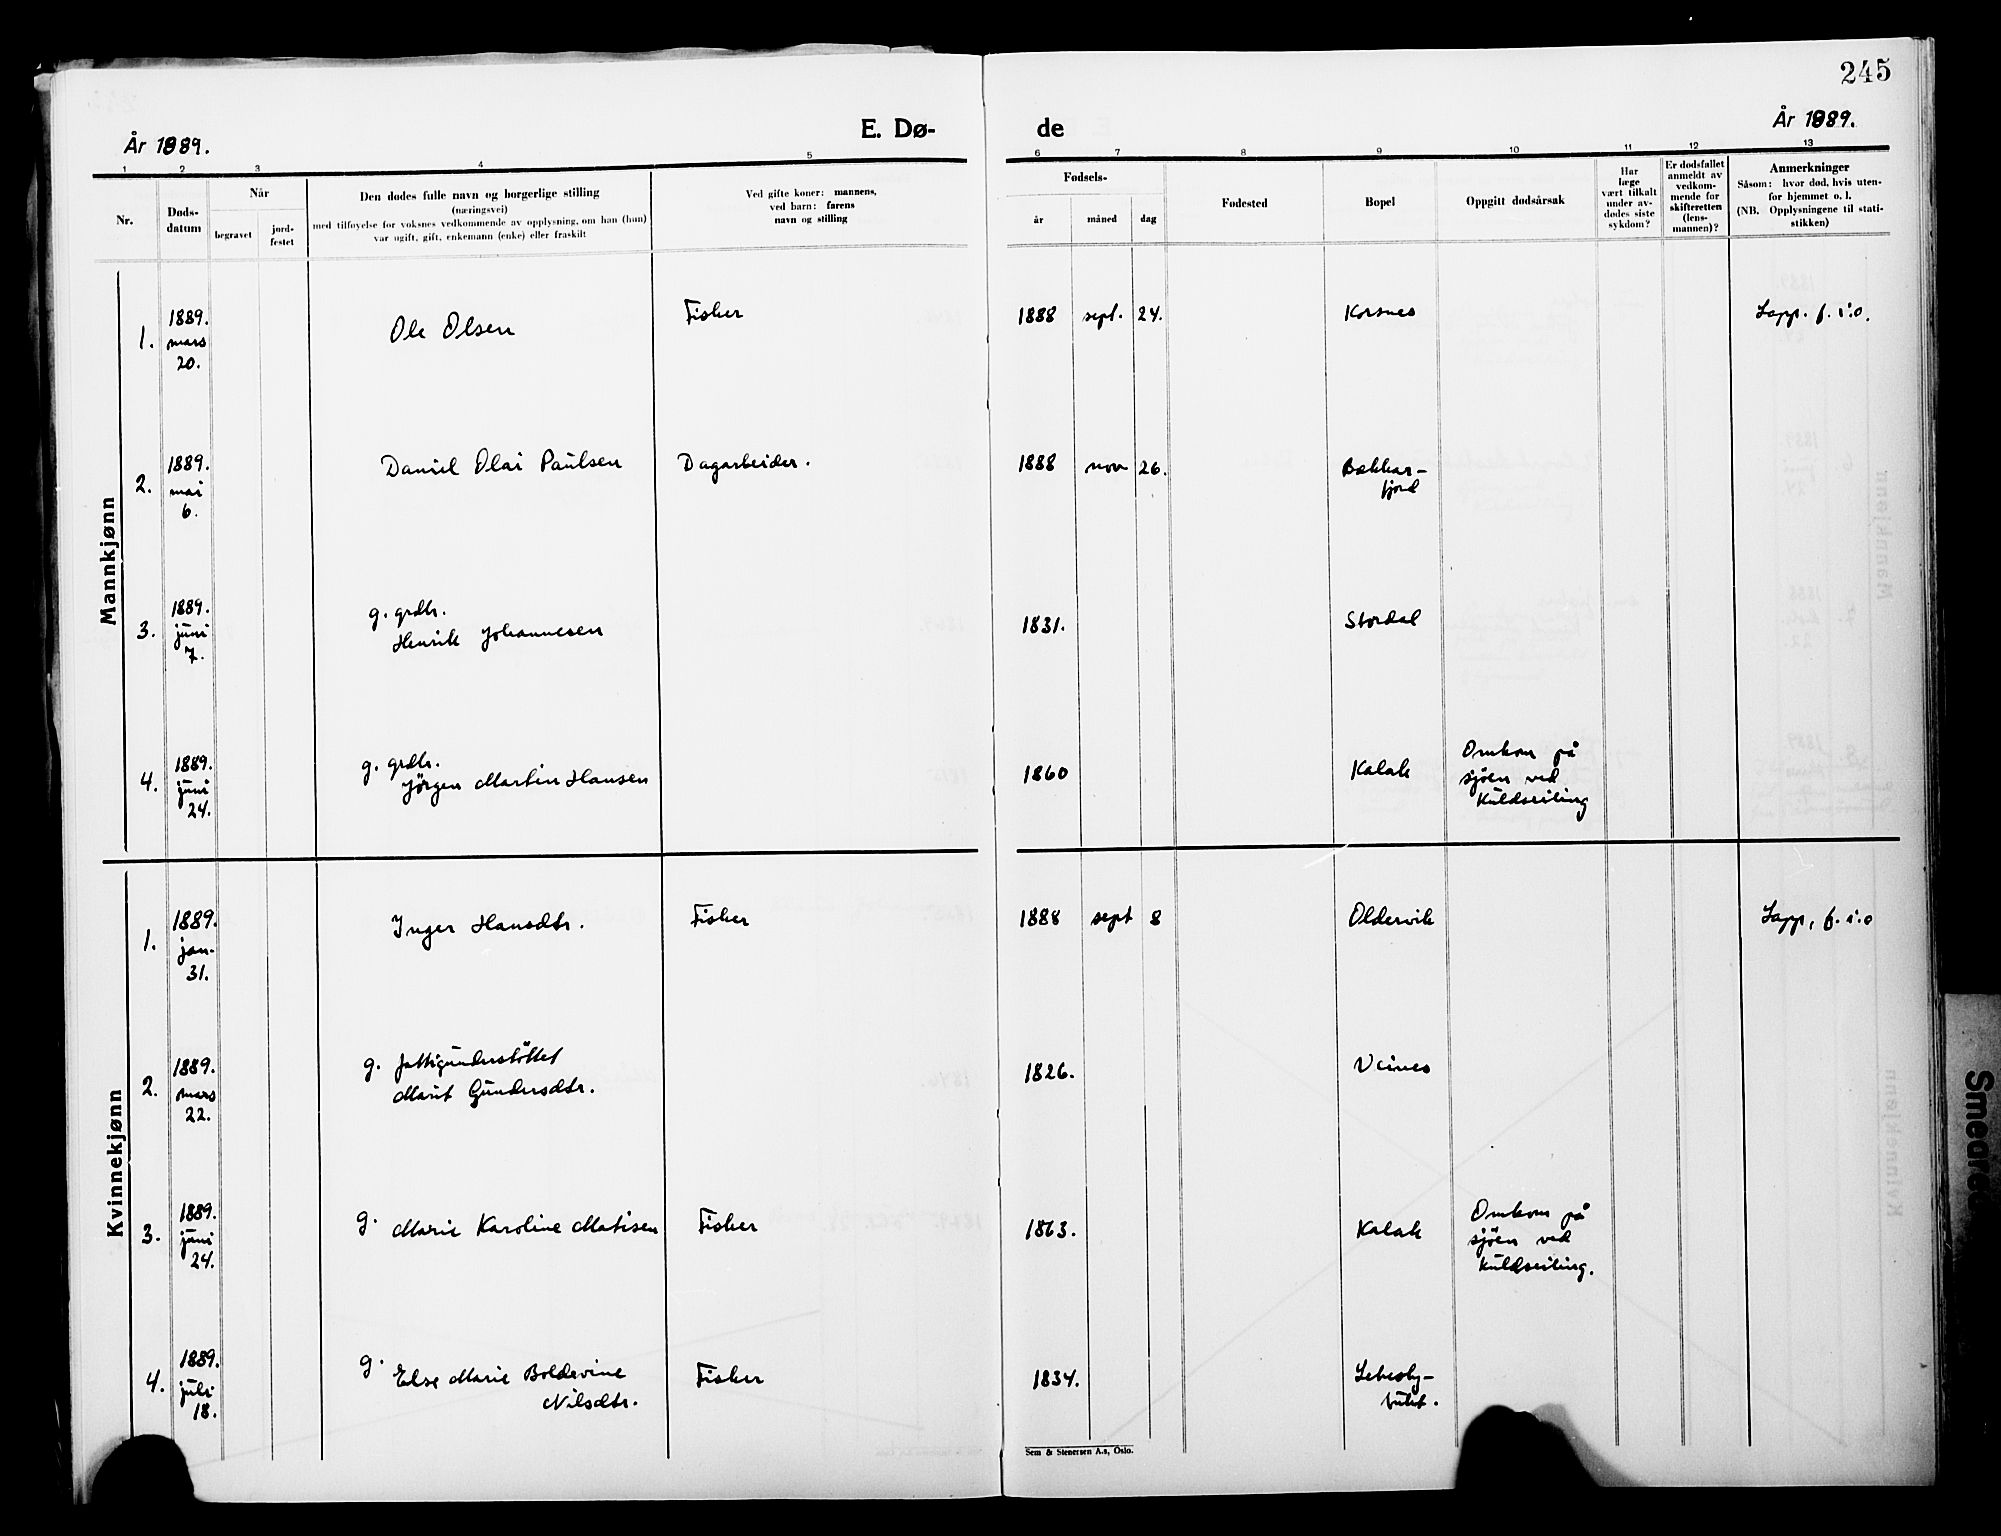 245
År 1889.
E. Dø-
de
År 1889.
1 2 3 4 5
6 7 8 9 10 11 12 13
Nr.
Døds-
datum
Når
begravet
jord-
festet
Den dødes fulle navn og borgerlige stilling
(næringsvei)
med tilføyelse for voksnes vedkommende av opplysning, om han (hun)
var ugift, gift, enkemann (enke) eller fraskilt
Ved gifte koner: mannens,
ved barn: farens
navn og stilling
Fødsels-
år
måned
dag
Fødested
Bopel
Oppgitt dødsårsak
Har
læge
vært tilkalt
under av-
dødes siste
sykdom?
Er dødsfallet
anmeldt av
vedkom-
mende for
skifteretten
(lens-
mannen)?
Anmerkninger
Såsom: hvor død, hvis uten-
for hjemmet o. l.
(NB. Opplysningene til stati-
stikken)
Mannkjønn
1.
1889.
mars
20.
Ole Olsen
Fisker
1888 sept. 24.
Korsnes
Lapp. f. i. o.
2.
1889.
mai
6.
Daniel Olai Paulsen
Dagarbeider.
1888 nov 26.
Bekkar-
fjord
3.
1889.
juni
7.
g. grdbr.
Henrik Johannesen
1831.
Stordal
4.
1889.
juni
24.
g. grdbr.
Jörgen Martin Hansen
1860
Kalak
Omkom på
sjöen ved
Kuldseiling
Kvinnekjønn
1.
1889.
jan-
31.
Inger Hansdtr.
Fisker
1888 sept 8
Oldervik
Lapp, f. i. o
2.
1889.
mars
22.
g. fattigunderstöttet
Marit Gundersdtr.
1826.
Veines
3.
1889.
juni
24.
g. Marie Karoline Matisen
Fisker
1863.
Kalak
Omkom på
sjöen ved
kuldseiling.
4.
1889.
juli
18.
g. Else Marie Boldevine
Nilsdtr.
Fisker
1834.
Lebesby-
Sem & Stenersen A.s, Oslo.